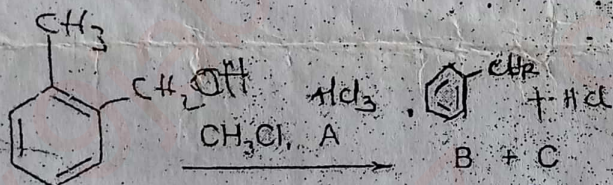 CH3
CH2OH
AlCl3
CH3Cl, A
+ HCl
B + C